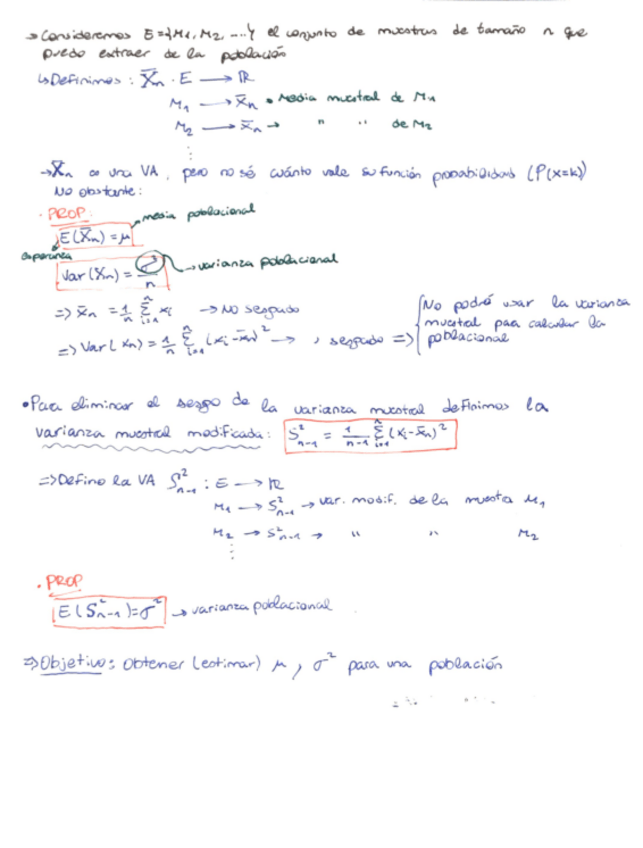 → Consideremos E={M₁, M₂, ....} el conjunto de muestras de tamaño n que
puedo extraer de la población
↳ Definimos: X̄ₙ : E → ℝ
M₁ → x̄ₙ • Media muestral de M₁
M₂ → x̄ₙ → " " de M₂
⋮
→ X̄ₙ es una VA, pero no sé cuánto vale su función probabilidad (P(X=k))
No obstante:
· PROP:
E(X̄ₙ) = μ → media poblacional
esperanza
Var(X̄ₙ) = σ²/n → varianza poblacional
=> x̄ₙ = 1/n Σᵢ₌₁ⁿ xᵢ → No sesgado
=> Var(xₙ) = 1/n Σᵢ₌₁ⁿ (xᵢ - x̄ₙ)² → , sesgado => { No podré usar la varianza
muestral para calcular la
poblacional
• Para eliminar el sesgo de la varianza muestral definimos la
varianza muestral modificada: S²ₙ₋₁ = 1/(n-1) Σᵢ₌₁ⁿ (xᵢ - x̄ₙ)²
=> Defino la VA S²ₙ₋₁ : E → ℝ
M₁ → S²ₙ₋₁ → var. modif. de la muestra M₁
M₂ → S²ₙ₋₁ → " " M₂
⋮
. PROP
E(S²ₙ₋₁) = σ² → varianza poblacional
=> Objetivo: Obtener (estimar) μ, σ² para una población